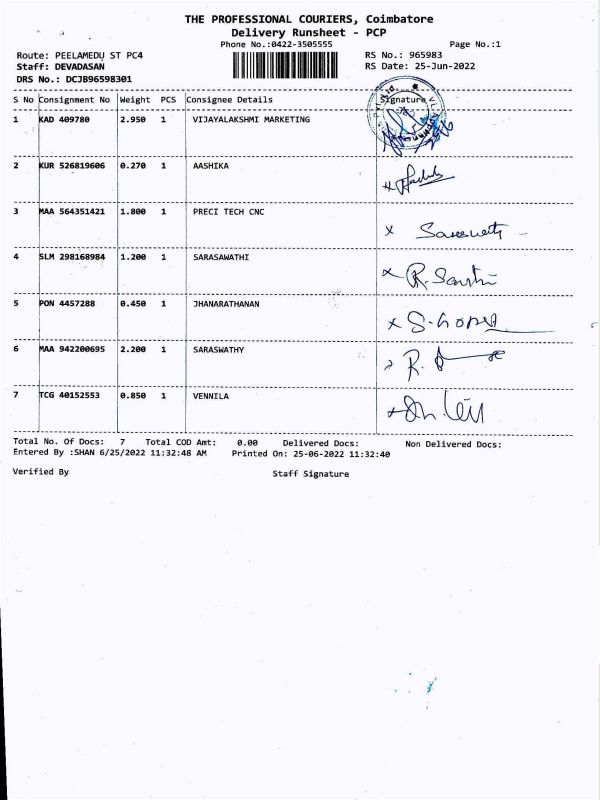 THE PROFESSIONAL COURIERS, Coimbatore
Delivery Runsheet - PCP
Phone No.:0422-3505555 Page No.:1
Route: PEELAMEDU ST PC4 RS No.: 965983
Staff: DEVADASAN RS Date: 25-Jun-2022
DRS No.: DCJB96598301
S No Consignment No Weight PCS Consignee Details Signature
1 KAD 409780 2.950 1 VIJAYALAKSHMI MARKETING
2 KUR 526819606 0.270 1 AASHIKA
3 MAA 564351421 1.800 1 PRECI TECH CNC
4 SLM 298168984 1.200 1 SARASAWATHI
5 PON 4457288 0.450 1 JHANARATHANAN
6 MAA 942200695 2.200 1 SARASWATHY
7 TCG 40152553 0.850 1 VENNILA
Total No. Of Docs: 7 Total COD Amt: 0.00 Delivered Docs: Non Delivered Docs:
Entered By :SHAN 6/25/2022 11:32:48 AM Printed On: 25-06-2022 11:32:40
Verified By Staff Signature